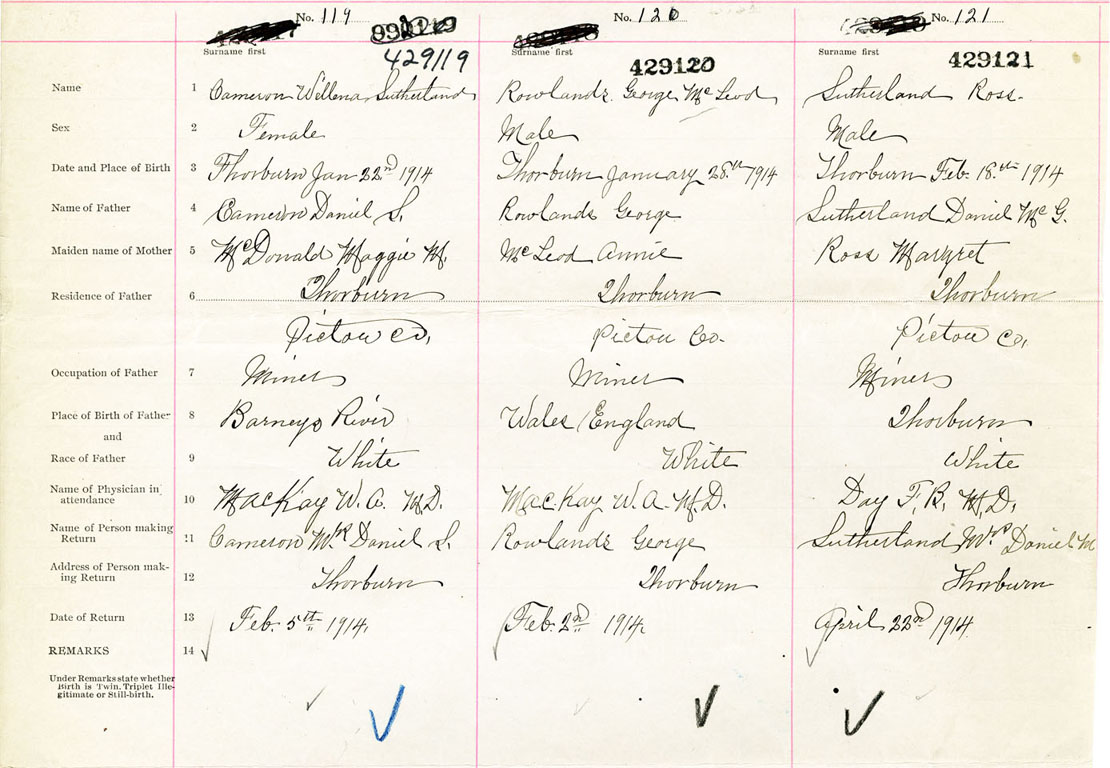 No. 119 No. 120 No. 121
Surname first Surname first Surname first
429119 429120 429121
Name 1 Cameron Willena Sutherland Rowlands George McLeod Sutherland Ross.
Sex 2 Female Male Male
Date and Place of Birth 3 Thorburn Jan 22nd 1914 Thorburn January 28th 1914 Thorburn Feb. 18th 1914
Name of Father 4 Cameron Daniel S. Rowlands George Sutherland Daniel McG.
Maiden name of Mother 5 McDonald Maggie M. McLeod Annie Ross Margret
Residence of Father 6 Thorburn Thorburn Thorburn
Pictou Co. Pictou Co. Pictou Co.
Occupation of Father 7 Miner Miner Miner
Place of Birth of Father 8 Barneys River Wales, England Thorburn
and
Race of Father 9 White White White
Name of Physician in
attendance 10 MacKay W. A. M.D. MacKay W. A. M.D. Day F. B. M.D.
Name of Person making
Return 11 Cameron Mr Daniel S. Rowlands George Sutherland Mrs Daniel M
Address of Person mak-
ing Return 12 Thorburn Thorburn Thorburn
Date of Return 13 Feb. 5th 1914. Feb. 2nd 1914. April 22nd 1914
REMARKS 14
Under Remarks state whether
Birth is Twin, Triplet Ille-
gitimate or Still-birth.